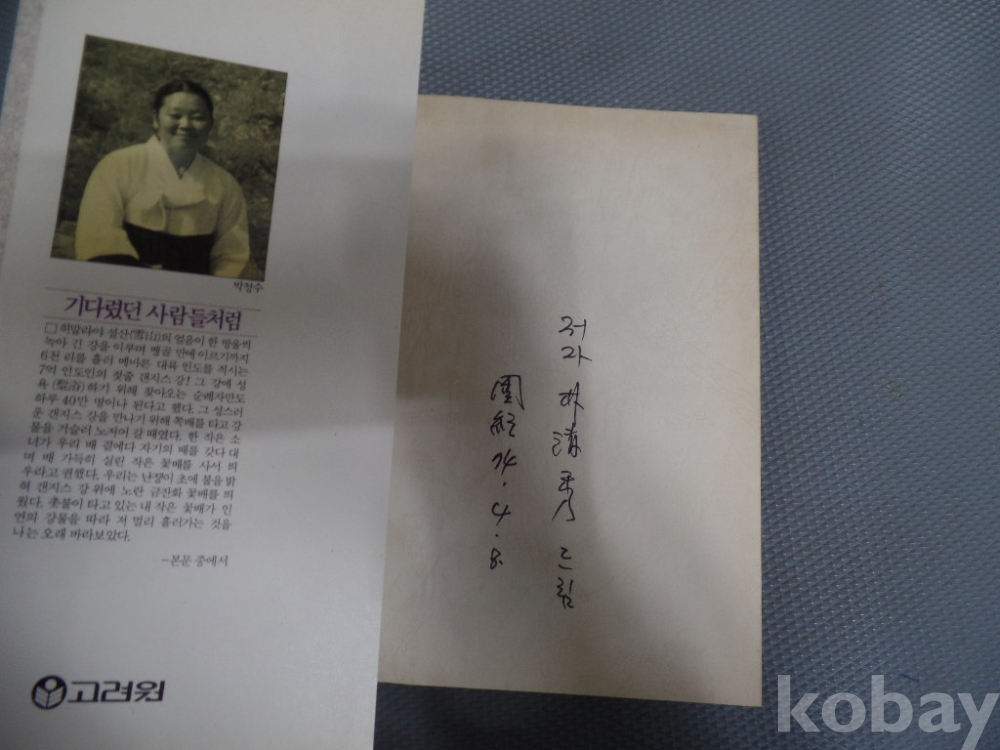 박청수
기다렸던 사람들처럼
□ 히말라야 설산(雪山)의 얼음이 한 방울씩
녹아 긴 강을 이루며 벵골 만에 이르기까지
6천 리를 흘러 메마른 대륙 인도를 적시는
7억 인도인의 젖줄 갠지스 강! 그 강에 성
욕(聖浴)하기 위해 찾아오는 순례자만도
하루 40만 명이나 된다고 했다. 그 성스러
운 갠지스 강을 만나기 위해 쪽배를 타고 강
물을 거슬러 노저어 갈 때였다. 한 작은 소
녀가 우리 배 곁에다 자기의 배를 갖다 대
며 배 가득히 실린 작은 꽃배를 사서 띄
우라고 권했다. 우리는 난쟁이 초에 불을 밝
혀 갠지스 강 위에 노란 금잔화 꽃배를 띄
웠다. 촛불이 타고 있는 내 작은 꽃배가 인
연의 강물을 따라 저 멀리 흘러가는 것을
나는 오래 바라보았다.
-본문 중에서
고려원
저자 朴淸秀 드림
圓紀 74. 4. 8.
kobay